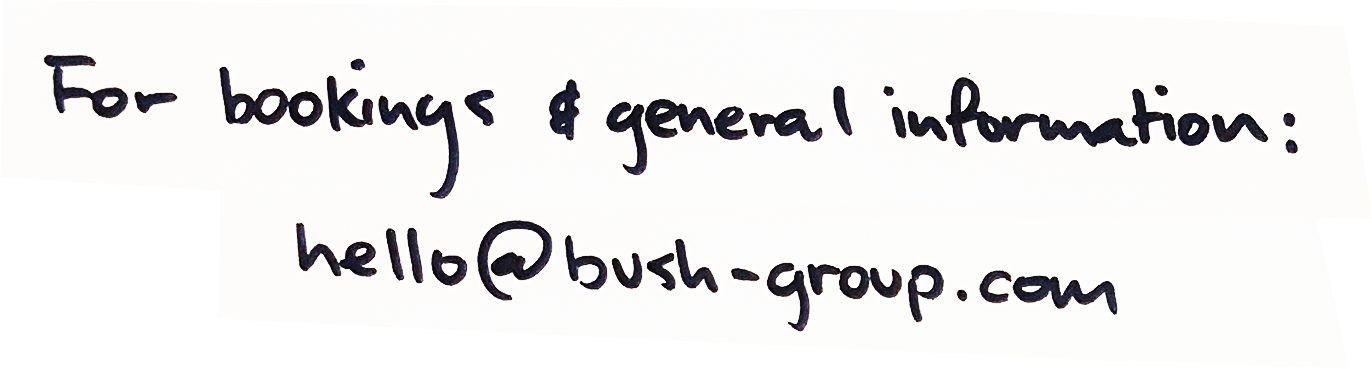 For bookings & general information:
hello@bush-group.com